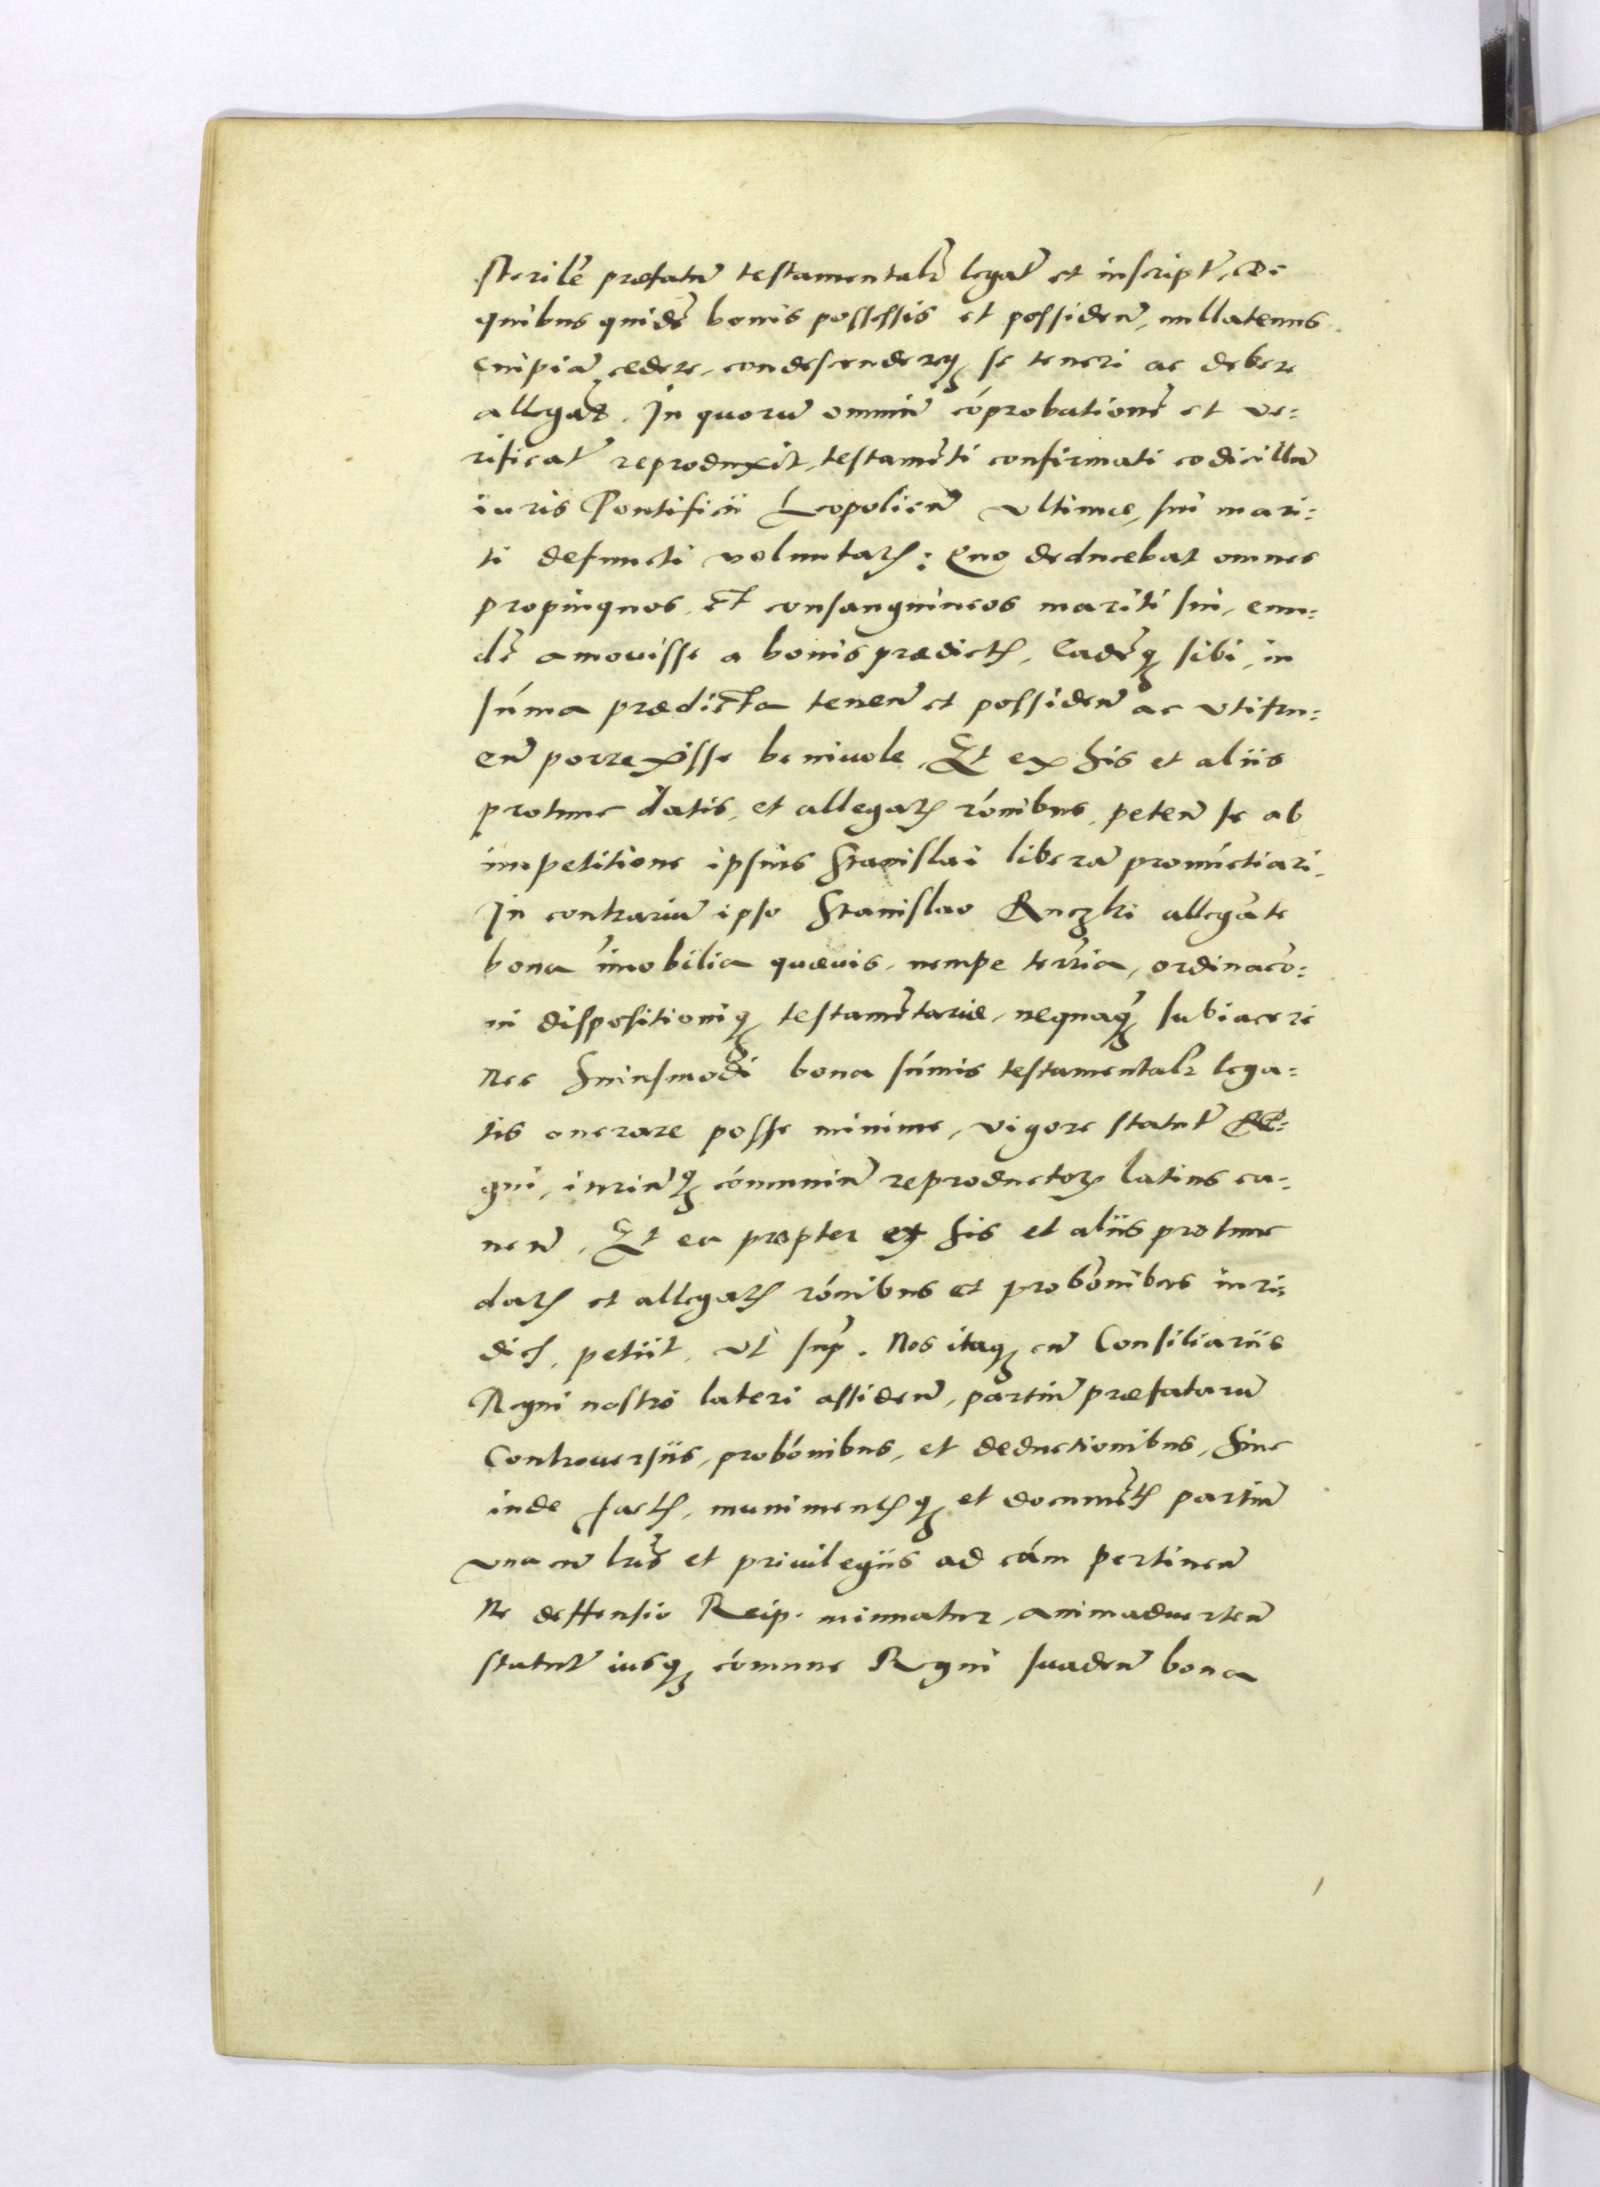 sterile̅ præfatu̅ testamentalr̅ legat̅ et inscript̅, De
quibus quide̅ bonis possessis et possiden̅, nullatenus
cuipia̅ cedere, condescendereq; se teneri ac debere
allegan̅s. In quoru̅ omniu̅ co̅probatione̅ et ve=
rificat̅ reproduxit, testame̅ti confirmati codicillu̅
iuris Pontificii Leopolien̅ vltimæ, sui mari=
ti defuncti voluntat̅: Quo deducebat omnes
propinquos et consanguineos mariti sui, eun=
de̅ amouisse a bonis prædict̅, Eade̅q; sibi, in
su̅ma prædicta tenen̅ et possiden̅ ac vtifru=
en̅ porrexisse beniuole, Et ex his et aliis
protunc datis, et allegat̅ ro̅nibus, peten̅ se ab
impetitione ipsius Stanislai libera̅ pronu̅ctiari.
In contrariu̅ ipso Stanislao Ruczki allega̅te
bona im̅obilia quæuis, nempe ter̅ria, ordinaco̅=
ni dispositioniq; testame̅tariæ, nequaq; subiacere
Nec huiusmodi bona su̅mis testamentalr̅ lega=
tis onerare posse minime, vigore statut̅ Re=
gni, iuriu̅q; co̅muniu̅ reproductor̅ latius ca=
nen̅, Et ea propter ex his et aliis protunc
dat̅ et allegat̅ ro̅nibus et probo̅nibus iuri=
dic̅, petiit, vt sup̅. Nos itaq; cu̅ Consiliariis
Regni nostro lateri assiden̅, partiu̅ præfataru̅
Controuersiis, probo̅nibus, et deductionibus, hinc
inde fact̅, muniment̅q; et docume̅t̅ partiu̅
vna cu̅ lr̅is et priuilegiis ad ca̅m pertinen̅
Ne deffensio Reip. minuatur, animaduerten̅
statut̅ iusq; co̅mune Regni suaden̅ bona